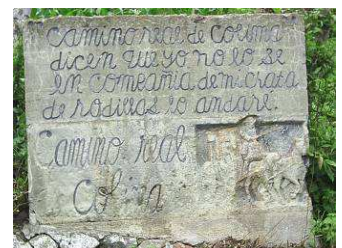 Camino real de Colima
dicen que yo no lo se
en compañia de mi chata
de rodillas lo andaré.
Camino real
Colima